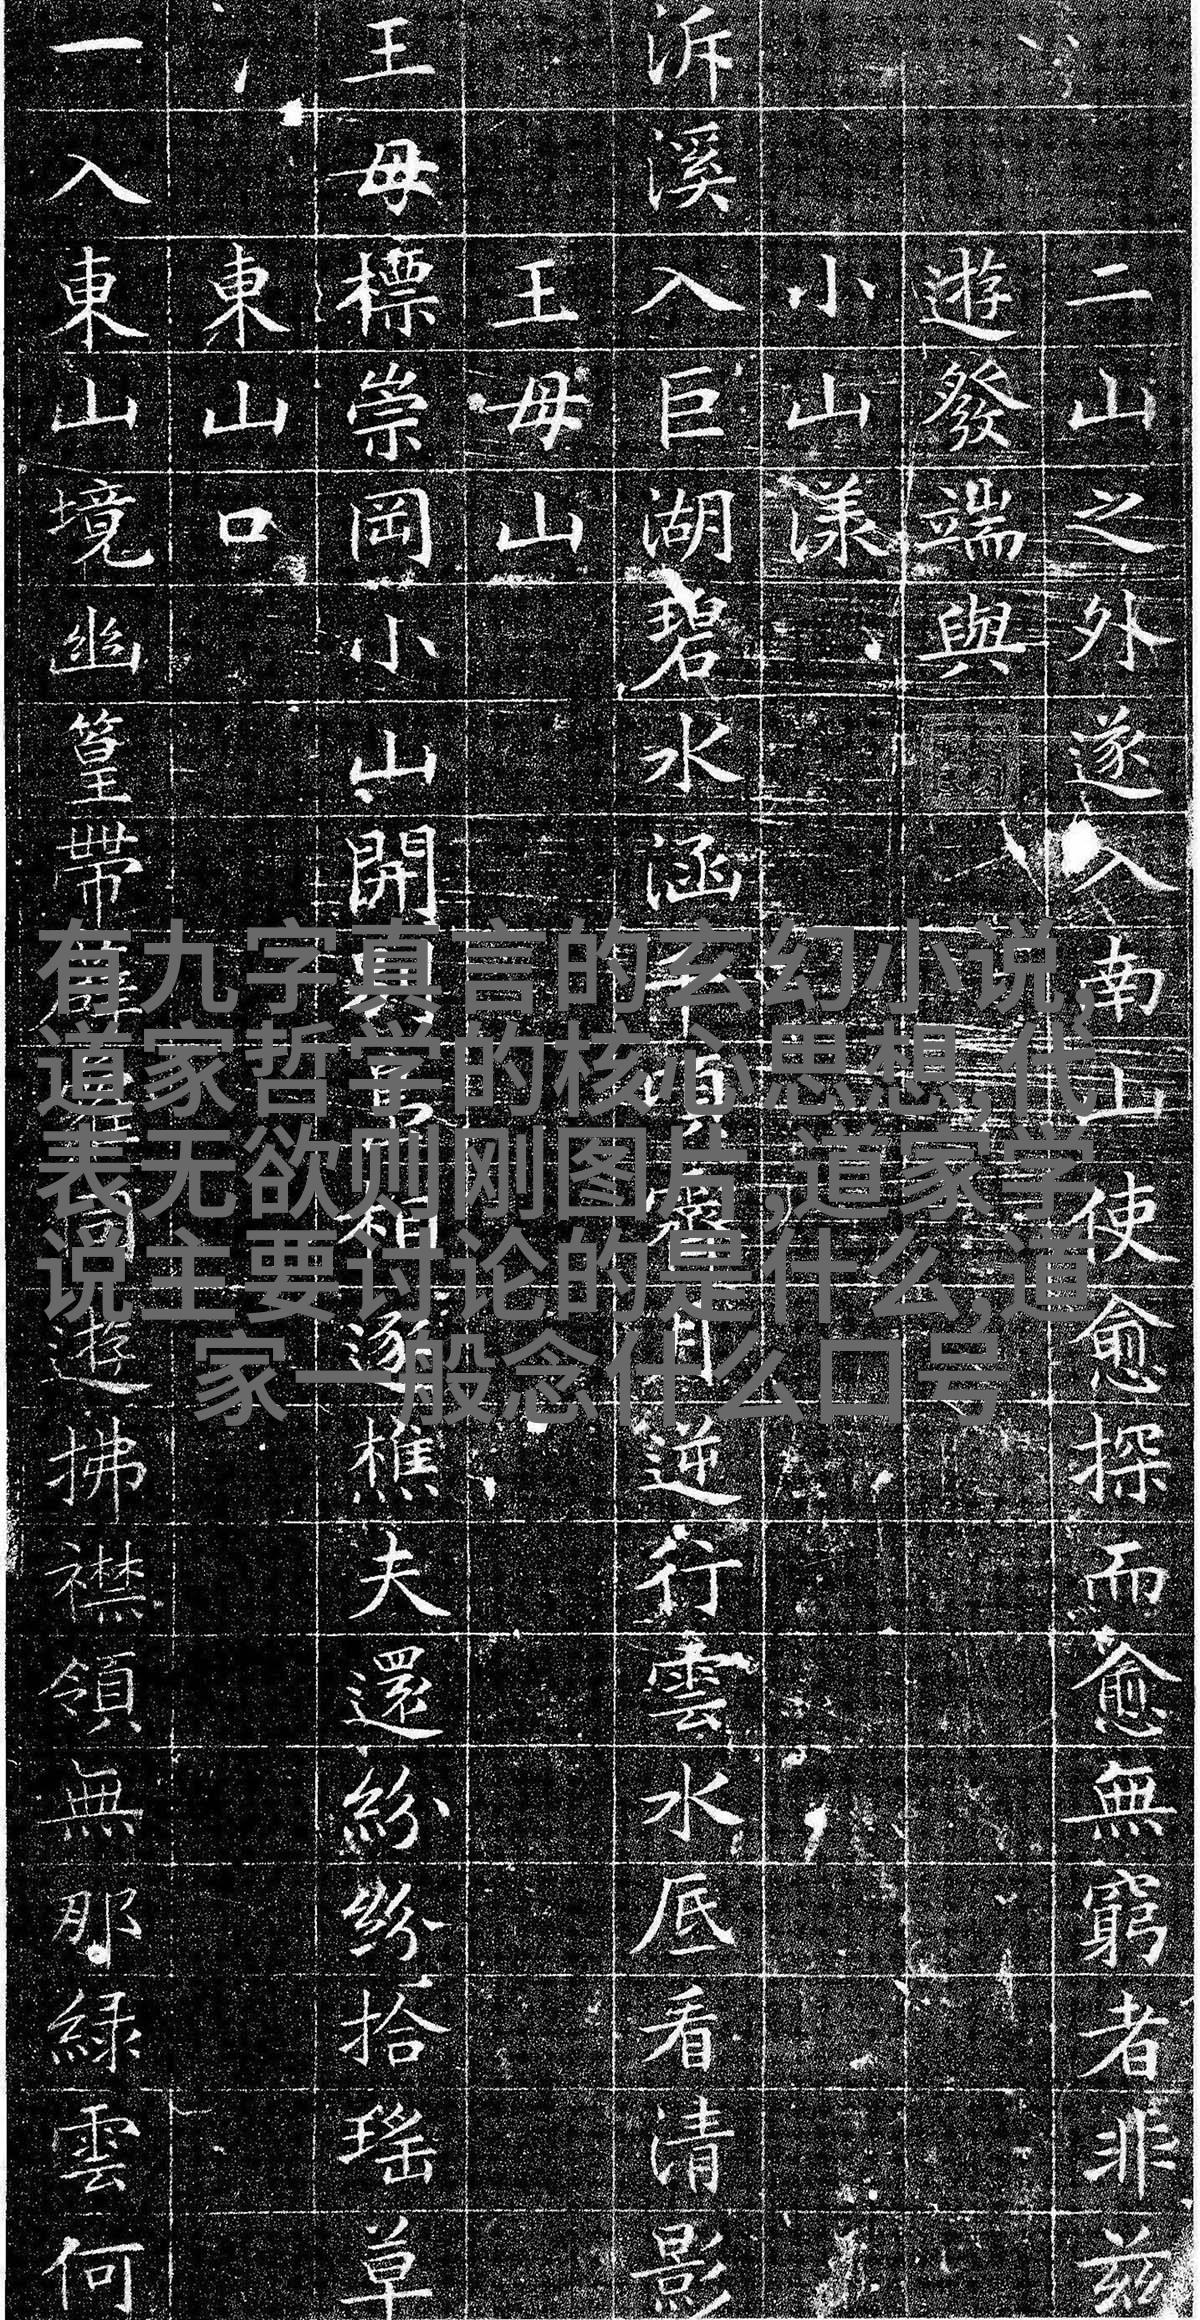 二山之外遂入南山使愈探而愈無窮者非茲
遊發端與
小山漾
泝溪入巨湖碧水涵千頃月逆行雲水底看清影
王母山
王母標崇岡小山開相逐樵夫還紛紛拾瑤草
東山口
一入東山境幽篁帶同遊拂襟領無那綠雲何
有九字真言的玄幻小说,
道家哲学的核心思想,代
表无欲则刚图片,道家学
说主要讨论的是什么,道
家一般念什么口号